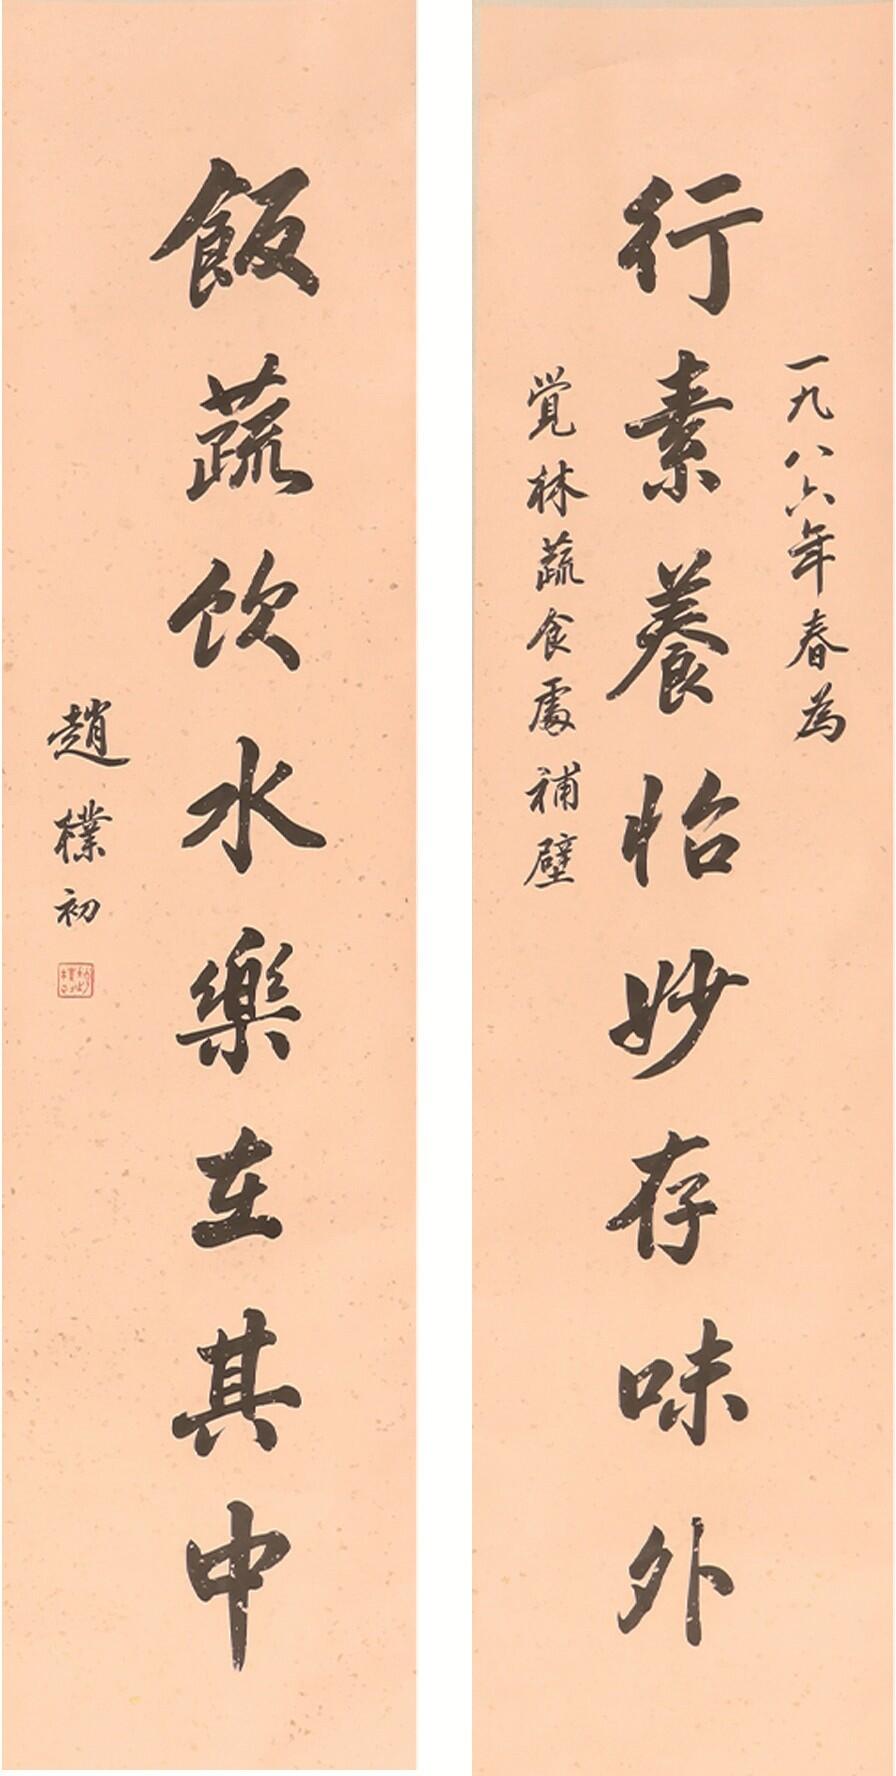 行素養怡妙存味外
一九八六年春為
覚林蔬食處補壁
飯蔬饮水樂在其中
趙樸初